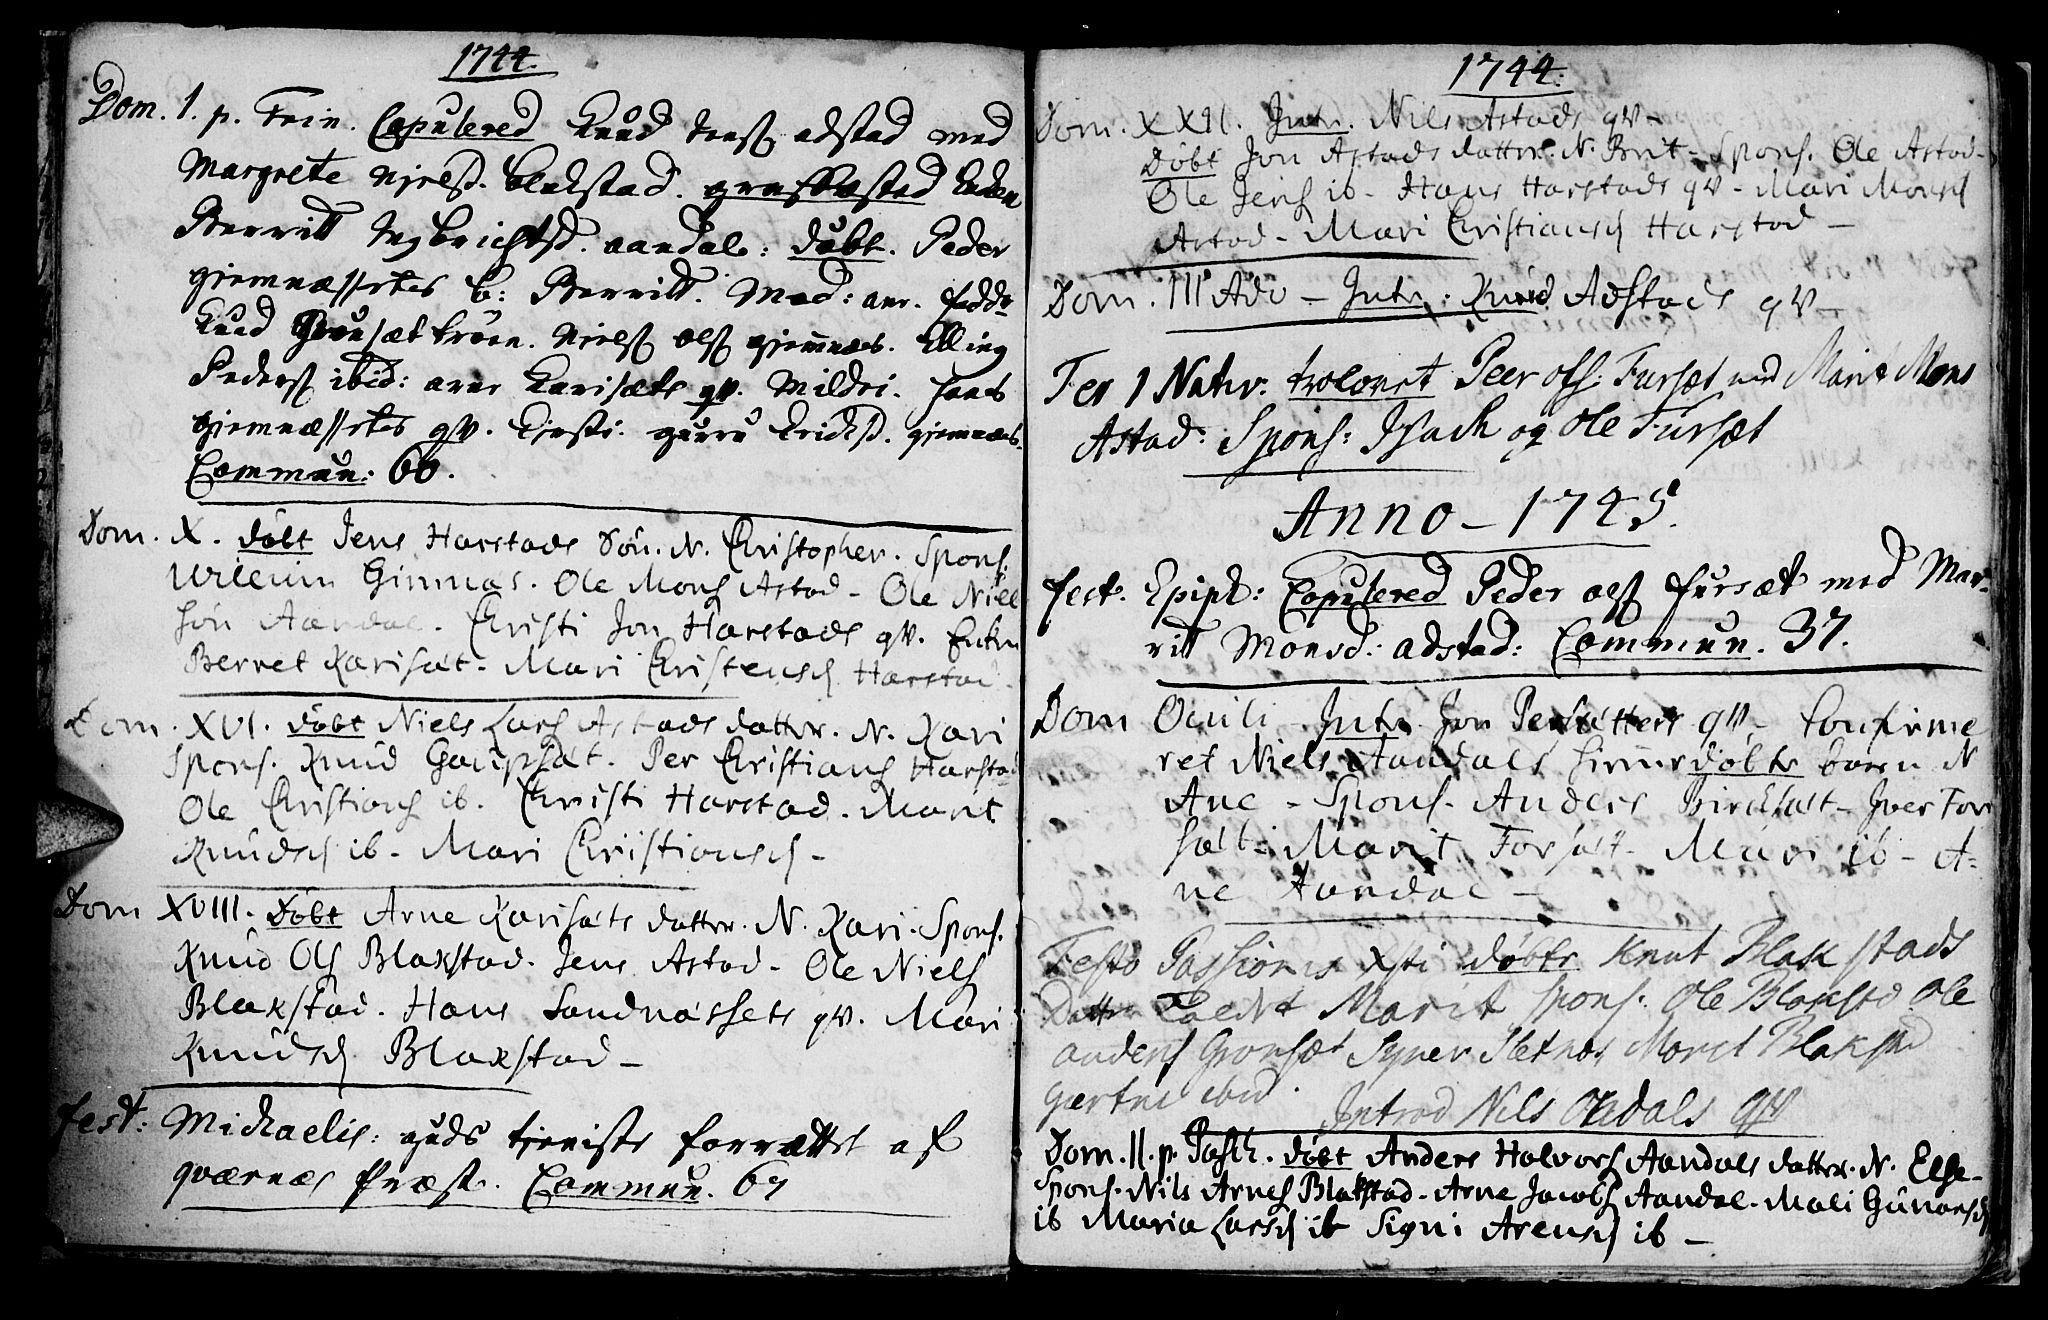 1744.
Dom. 1. p. Trin. Copulered Knud Jensß adstad med
Margrete Njelsd. blakstad. græsfæsted Enken
Berritt Ingbrichtsd. aandals: døbt. Peder
giemnæssetes b: Berritt. Mad: anr. fadd
Knud Gounsætkröen. Njelsß olsß giemnæs. Elling
Pedersß ibid: arne Karisæts qv. Mildri. Hans
giemnæssetes qv. Kirsti. guuru Erichsd. giemnæs.
Commun: 66.
Dom. X. døbt Jens Harstads Søn. N. Christopher. Spons.
Willum Gimnas. Ole Mons Astad - Ole Niel
søn Aandal. Christi Jon Harstads qv. Enken
Berret Karisæt - Mari Christensd Harstad
Dom. XVI. døbt Niels Lars Astads datter. N. Kari
Spons. Knud Goupsat. Per Christians Harstad
Ole Christians ib. Christi Harstad. Marit
Knudsd ib - Mari Christiansd -
Dom XVIII. Døbt Arne Karisæts datter. N. Kari. Spons.
Knud Ols Blakstad. Jens Astad - Ole Niels
Blakstad. Hans Sandnæssets qv. Mari
Knudsd Blakstad -
fest: Michaelis: guds tjeniste forrættet af
qværnes Præst. Commun. 67
1744.
Dom. XXII. Intr. Nils Astads qv -
Døbt Jon Astads datter. N. Brit - Spons. Ole Astad -
Ole Jens ib - Hans Harstads qv - Mari Monsd
Astad - Mari Christiansd Harstad -
Dom. III Adv - Intr: Knud Adstads qv -
Fer 1 Nativ. trolovet Peer ols: Fursæt med Marit Mons
Astad: Spons: Isach og Ole Fursæt
Anno - 1745.
fest. Epiph: Copulered Peder olsß fursæt med Mar-
ritt Monsd: adstad: Commun. 37.
Dom Oculi - Intr. Jon Persætters qv - Confirme
ret Niels Aandals hiemmedøbte barn N
Ane - Spons. Anders Birchsæt - Iver For
sæt - Marit Forsæt - Mari ib - A=
ne Aandal -
Festo Passionis Xsti døbte Knut Blakstads
Datter kaldet Marit Spons: Ole Blakstd Ole
anders Gronset Syver Sletnæs Maret Blakstad
Gertru ibid.
Introd Nils Ondals qv
Dom. II. p. Pasch. døbt Anders Halvors Aandals datter. N. Else -
Spons. Nils Arnes Blakstad - Arne Jacobs Aandal - Mali Gunarsd
ib Maria Larsd ib Signi Arensd ib -